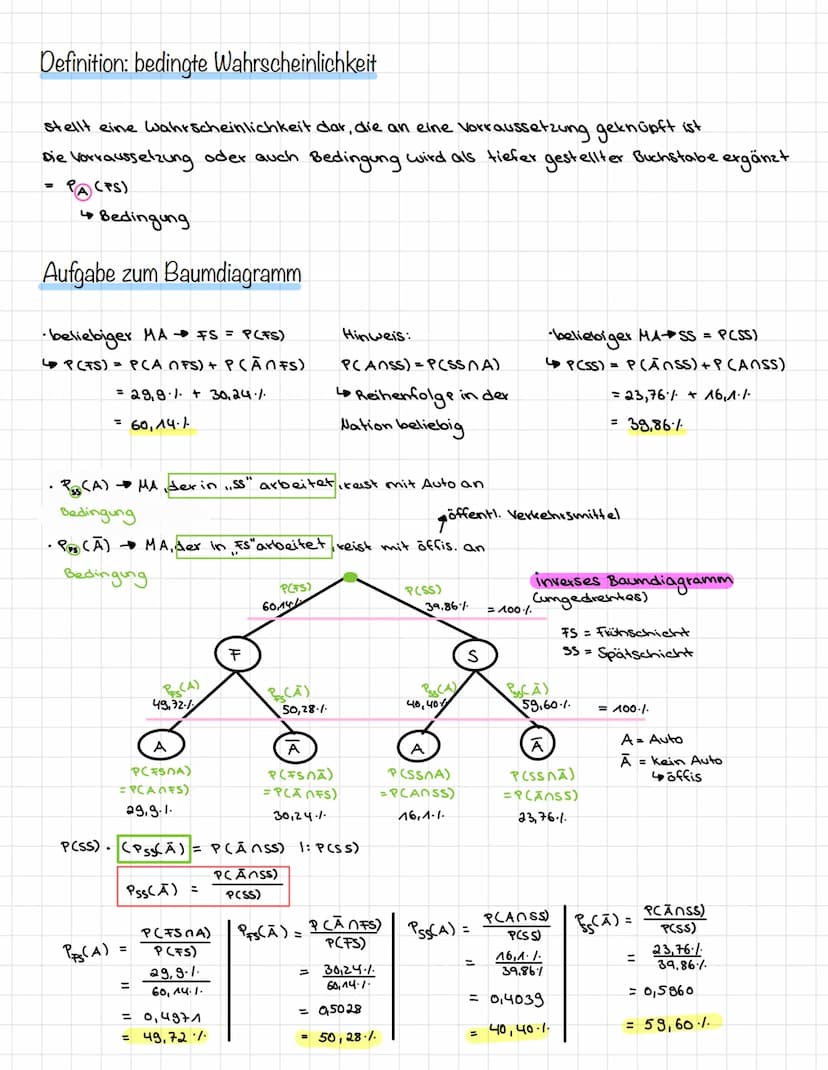 Definition: bedingte Wahrscheinlichkeit
stellt eine Wahrscheinlichkeit dar, die an eine Vorraussetzung geknüpft ist
Die Vorraussetzung oder auch Bedingung wird als tiefer gestellter Buchstabe ergänzt
= P_A (FS)
↳ Bedingung
Aufgabe zum Baumdiagramm
· beliebiger MA → FS = P(FS)
↳ P(FS) = P(A ∩ FS) + P(Ā ∩ FS)
= 29,9 % + 30,24 %
= 60,14 %
Hinweis:
P(A ∩ SS) = P(SS ∩ A)
↳ Reihenfolge in der
Nation beliebig
· beliebiger MA → SS = P(SS)
↳ P(SS) = P(Ā ∩ SS) + P(A ∩ SS)
= 23,76 % + 16,1 %
= 39,86 %
· P_SS (A) → MA, der in „SS" arbeitet, reist mit Auto an
Bedingung
öffentl. Verkehrsmittel
· P_FS (Ā) → MA, der in „FS" arbeitet, reist mit öffis. an
Bedingung
inverses Baumdiagramm
(umgedrehtes)
P(FS)
60,14 %
P(SS)
39,86 %
= 100 %
FS = Frühschicht
SS = Spätschicht
F
S
P_FS (A)
49,72 %
P_FS (Ā)
50,28 %
P_SS (A)
40,40 %
P_SS (Ā)
59,60 %
= 100 %
A
Ā
A
Ā
A = Auto
Ā = kein Auto
↳ öffis
P(FS ∩ A)
= P(A ∩ FS)
29,9 %
P(FS ∩ Ā)
= P(Ā ∩ FS)
30,24 %
P(SS ∩ A)
= P(A ∩ SS)
16,1 %
P(SS ∩ Ā)
= P(Ā ∩ SS)
23,76 %
P(SS) · (P_SS (Ā) = P(Ā ∩ SS) |: P(SS)
P_SS (Ā) = P(Ā ∩ SS) / P(SS)
P_FS (A) = P(FS ∩ A) / P(FS)
= 29,9 % / 60,14 %
= 0,4971
= 49,72 %
P_FS (Ā) = P(Ā ∩ FS) / P(FS)
= 30,24 % / 60,14 %
= 0,5028
= 50,28 %
P_SS (A) = P(A ∩ SS) / P(SS)
= 16,1 % / 39,86 %
= 0,4039
= 40,40 %
P_SS (Ā) = P(Ā ∩ SS) / P(SS)
= 23,76 % / 39,86 %
= 0,5960
= 59,60 %